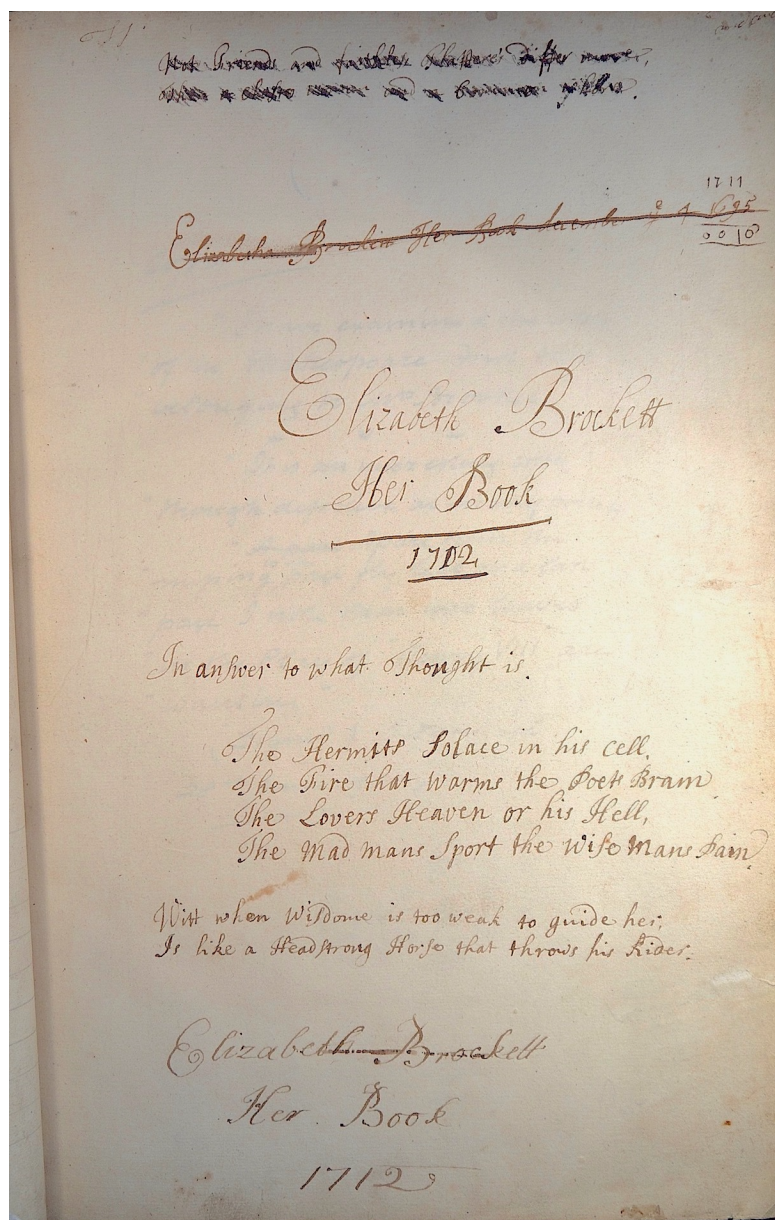 Not Friends and faithles differ more,
a and a
1711
Elizabetha Her Book 1695
0010
Elizabeth Brockett
Her Book
1702
In answer to what Thought is.
The Hermitts Solace in his cell,
The Fire that warms the Poets Brain
The Lovers Heaven or his Hell,
The Mad mans Sport the wise mans Pain.
Witt when Wisdome is too weak to guide her,
Is like a Headstrong Horse that throws his Rider.
Elizabeth Brockett
Her Book
1712